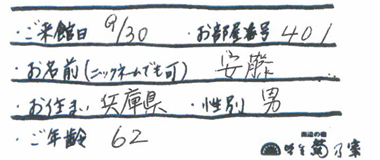 ・ご来館日 9/30 ・お部屋番号 401
・お名前(ニックネームでも可) 安藤
・お住まい 兵庫県 ・性別 男
・ご年齢 62